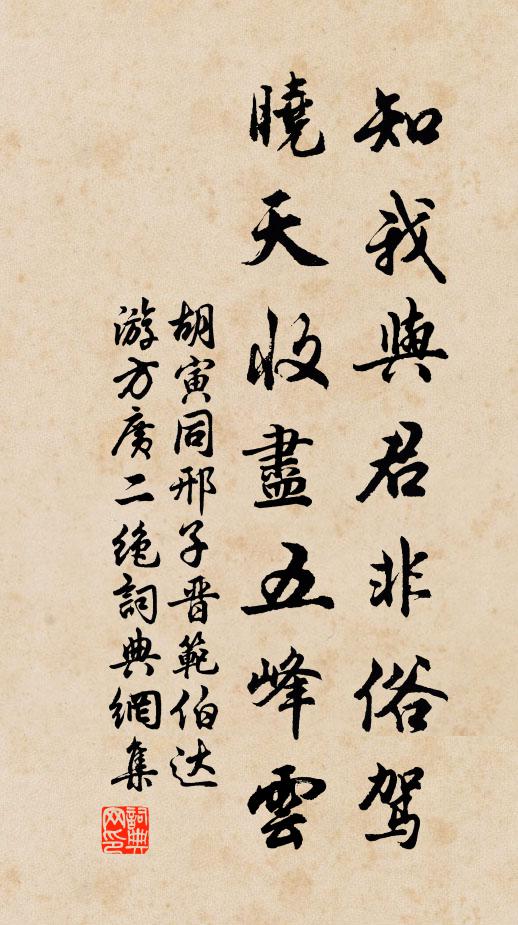 知我與君非俗駕
曉天收盡五峰雲
胡寅同邢子晋範伯达
游方廣二绝詞典網集
詞典网印